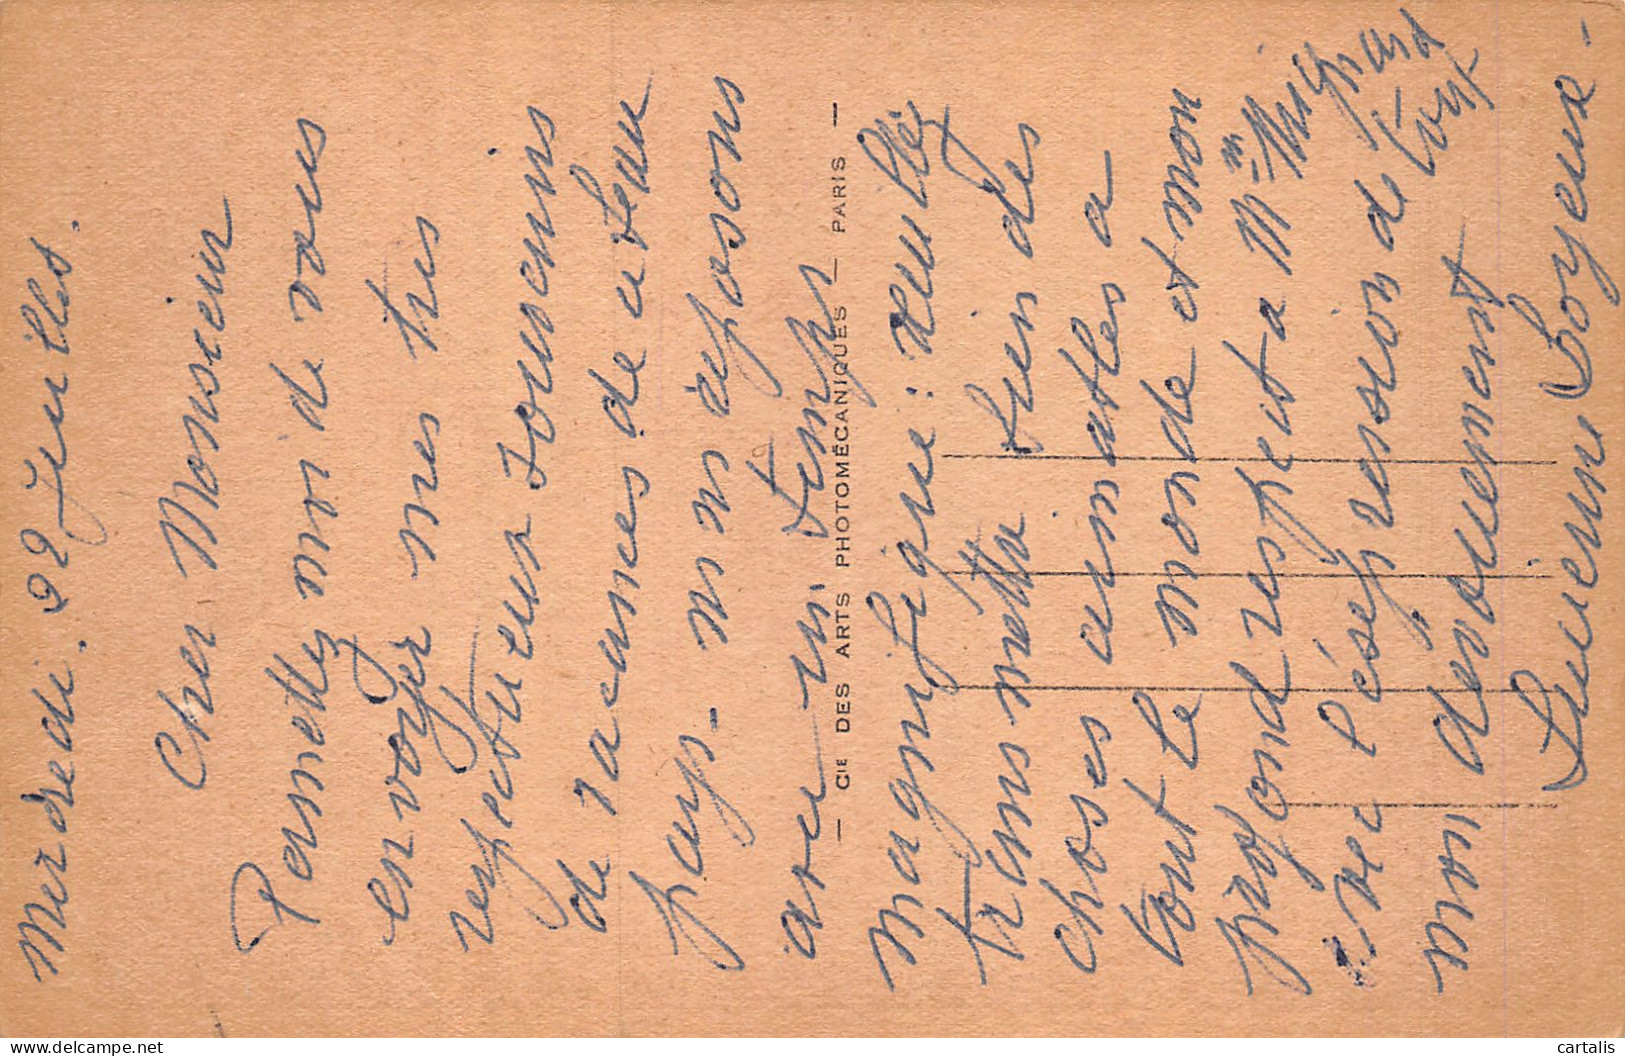 Mercredi. 22 Juillet.
Cher Monsieur
Permettez moi de vous
envoyer mes très
respectueux souvenirs
de vacances de ce beau
pays - nous reposons
avec un temps
magnifique: veuillez
transmettre bien des
choses aimables a
tout le monde et mon
profond respect a Mme
avec l'éxpression de tout
mon dévouement
Lucienne Boyeux -
— CIE DES ARTS PHOTOMÉCANIQUES — PARIS —
cartalis